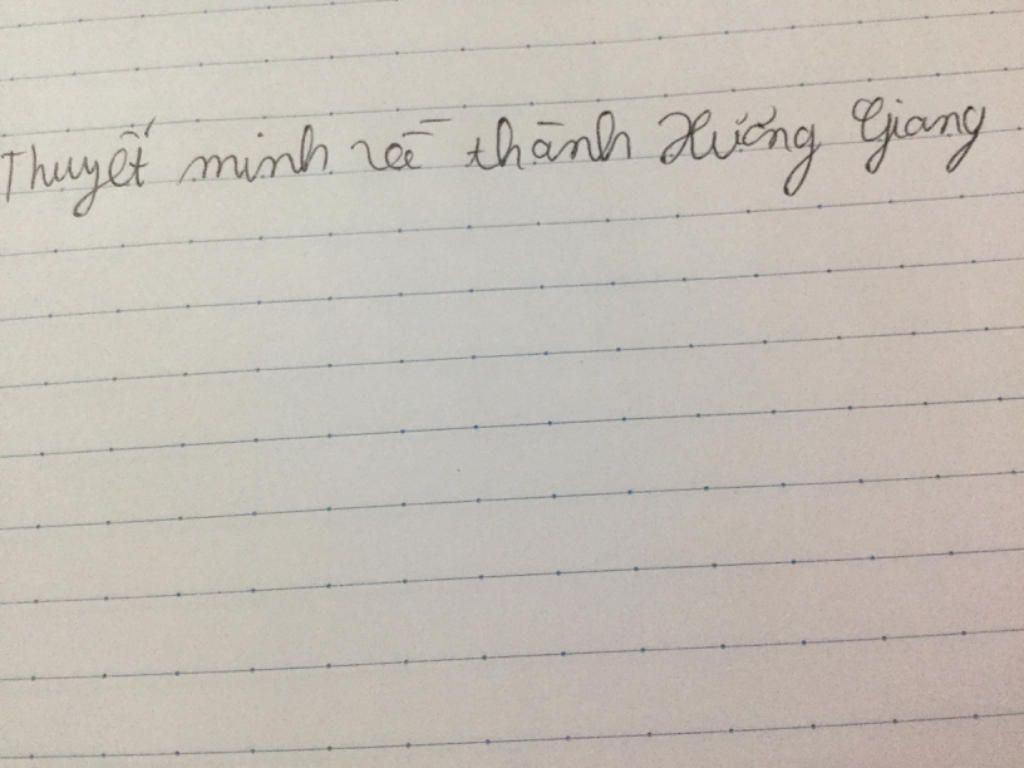 Thuyết minh về thành Xương Giang